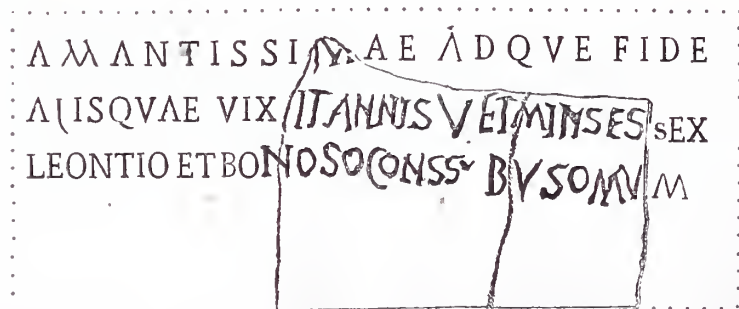 AMANTISSIMAE ADQVE FIDE
ALISQVAE VIXIT ANNIS V ET MINSES SEX
LEONTIO ET BONOSO CONSS BVSOMVM